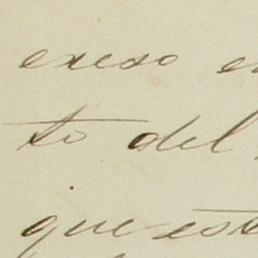 exeso
to del
que est